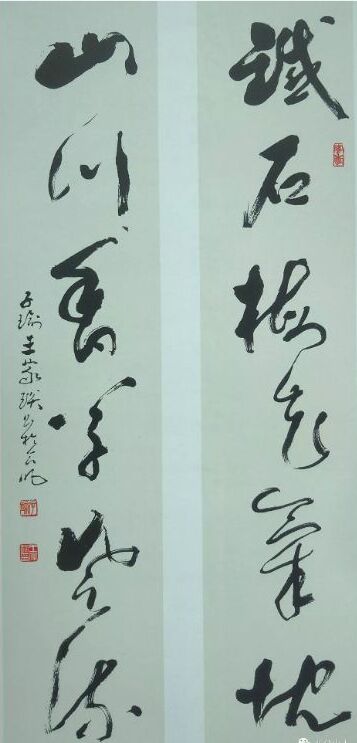 鐵石梅花氣概
山川香草風流
子瑜王